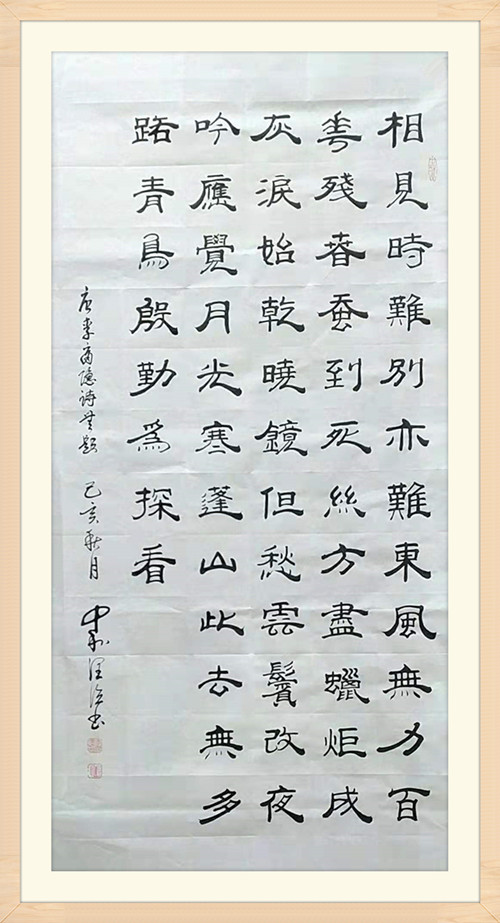 相見時難別亦難東風無力百
花殘春蚕到死絲方盡蠟炬成
灰淚始乾曉鏡但愁雲鬢改夜
吟應覺月光寒蓬山此去無多
路青鳥殷勤爲探看
唐李商隐詩無題 己亥秋月 书